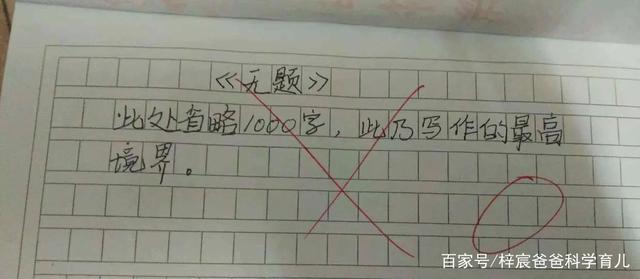 《无题》
此处省略1000字，此乃写作的最高
境界。
百家号/梓宸爸爸科学育儿